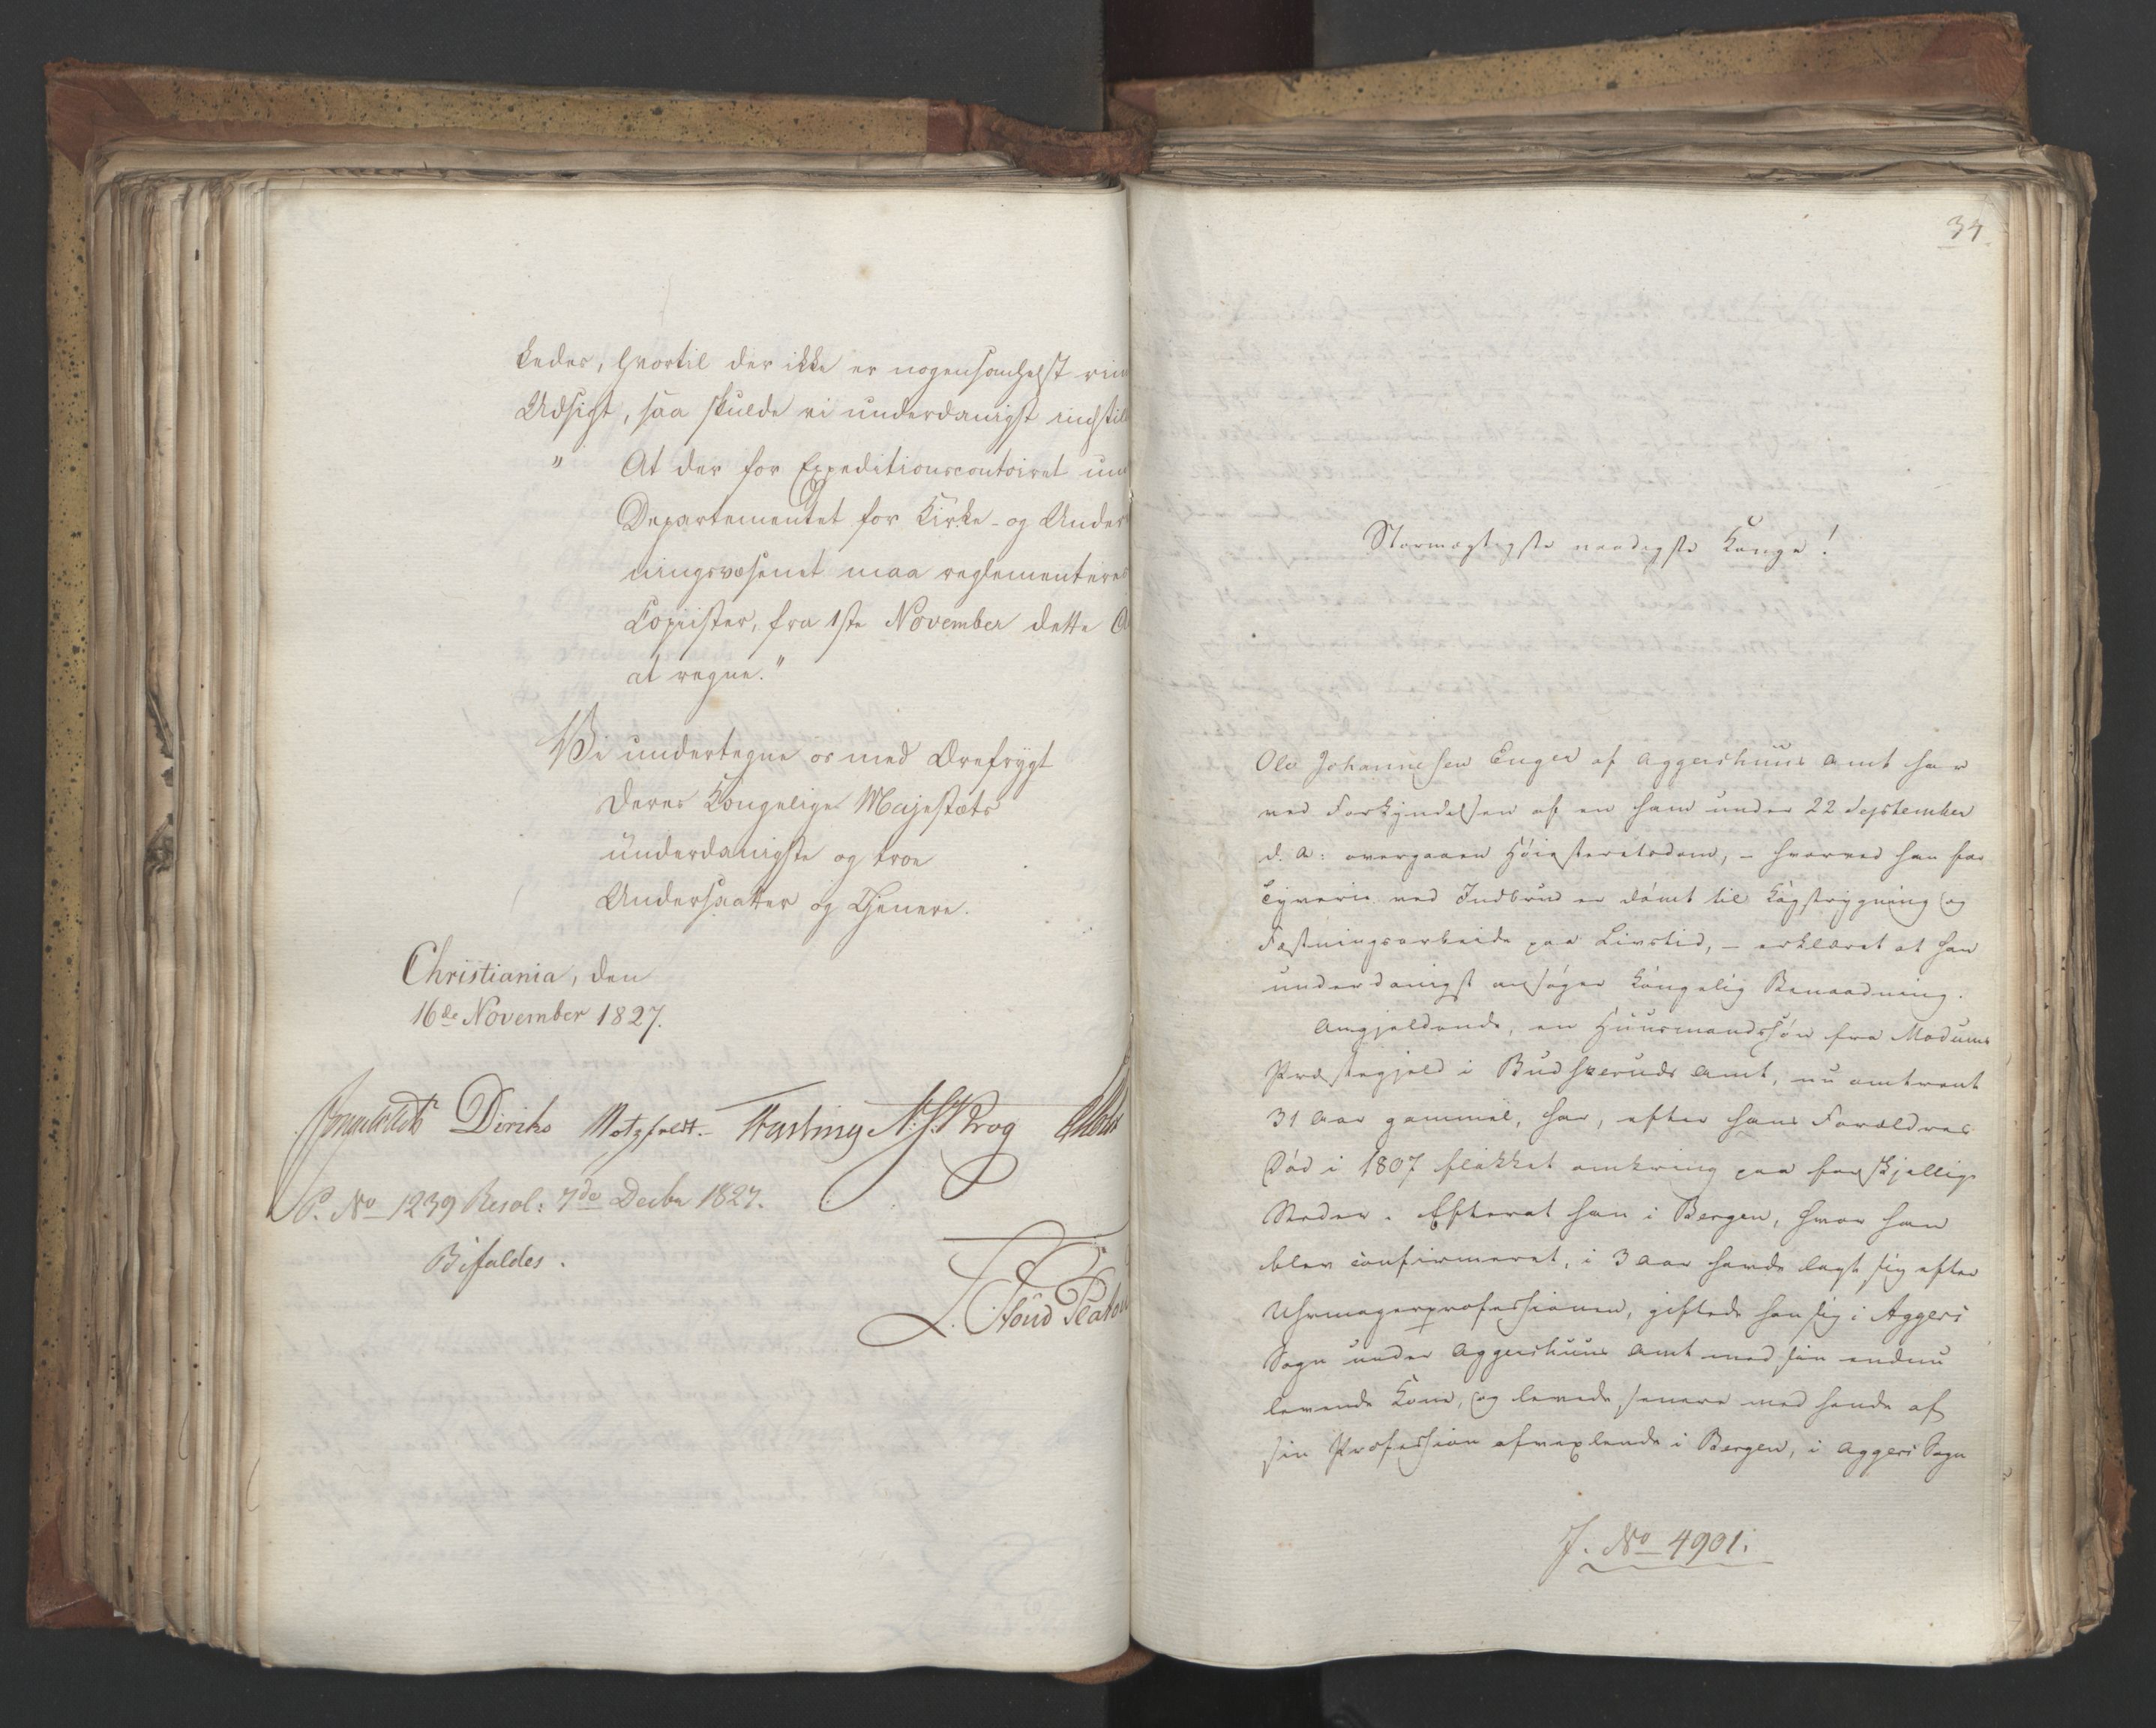 kedes, hvortil der ikke er nogensomhelst rim
Udsigt, saa skulde vi underdanigst indstil
" At der for Expeditionscontoiret un
Departementet for Kirke- og Under
ningsvæsenet maa reglementeres
Copiister, fra 1ste November dette A
at regne."
Vi undertegne os med Ærefrygt
Deres Kongelige Majestæts
underdanigste og troe
Undersaatter og Tjenere.
Christiania, den
16de November 1827.
Diriks Motzfeldt. Fasting N.J. Krog
P. No 1239 Resol: 7de Decbr 1827.
Bifaldes.
34
Stormægtigste naadigste Konge!
Ole Johannesen Enger af Aggershuus Amt har
ved Forkyndelsen af en ham under 22 September
d. A: overgaaen Høiesteretsdom, - hvorved han for
Tyverie ved Indbrud er dømt til Kagstrygning og
Fæstningsarbeide paa Livstid, - erklæret at han
underdanigst ansøger Kongelig Benaadning.
Angjeldende, en Huusmandssøn fra Modums
Præstegjeld i Budskeruds Amt, nu omtrent
31 Aar gammel, har, efter hans Forældres
Død i 1807 flakket omkring paa forskjellige
Steder. Efterat han i Bergen, hvor han
blev confirmeret, i 3 Aar havde lagt sig efter
Uhrmagerprofessionen, giftede han sig i Aggers
Sogn under Aggershuus Amt med sin endnu
levende Kone, og levede senere med hende af
sin Profession afvexlende i Bergen, i Aggers Sogn
J. No 4901.